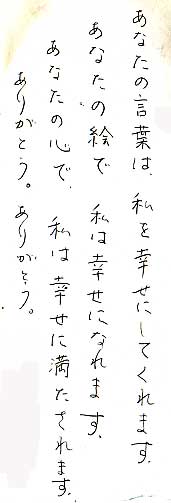 あなたの言葉は、私を幸せにしてくれます。
あなたの絵で 私は幸せになれます、
あなたの心で、私は幸せに満たされます。
ありがとう。ありがとう。